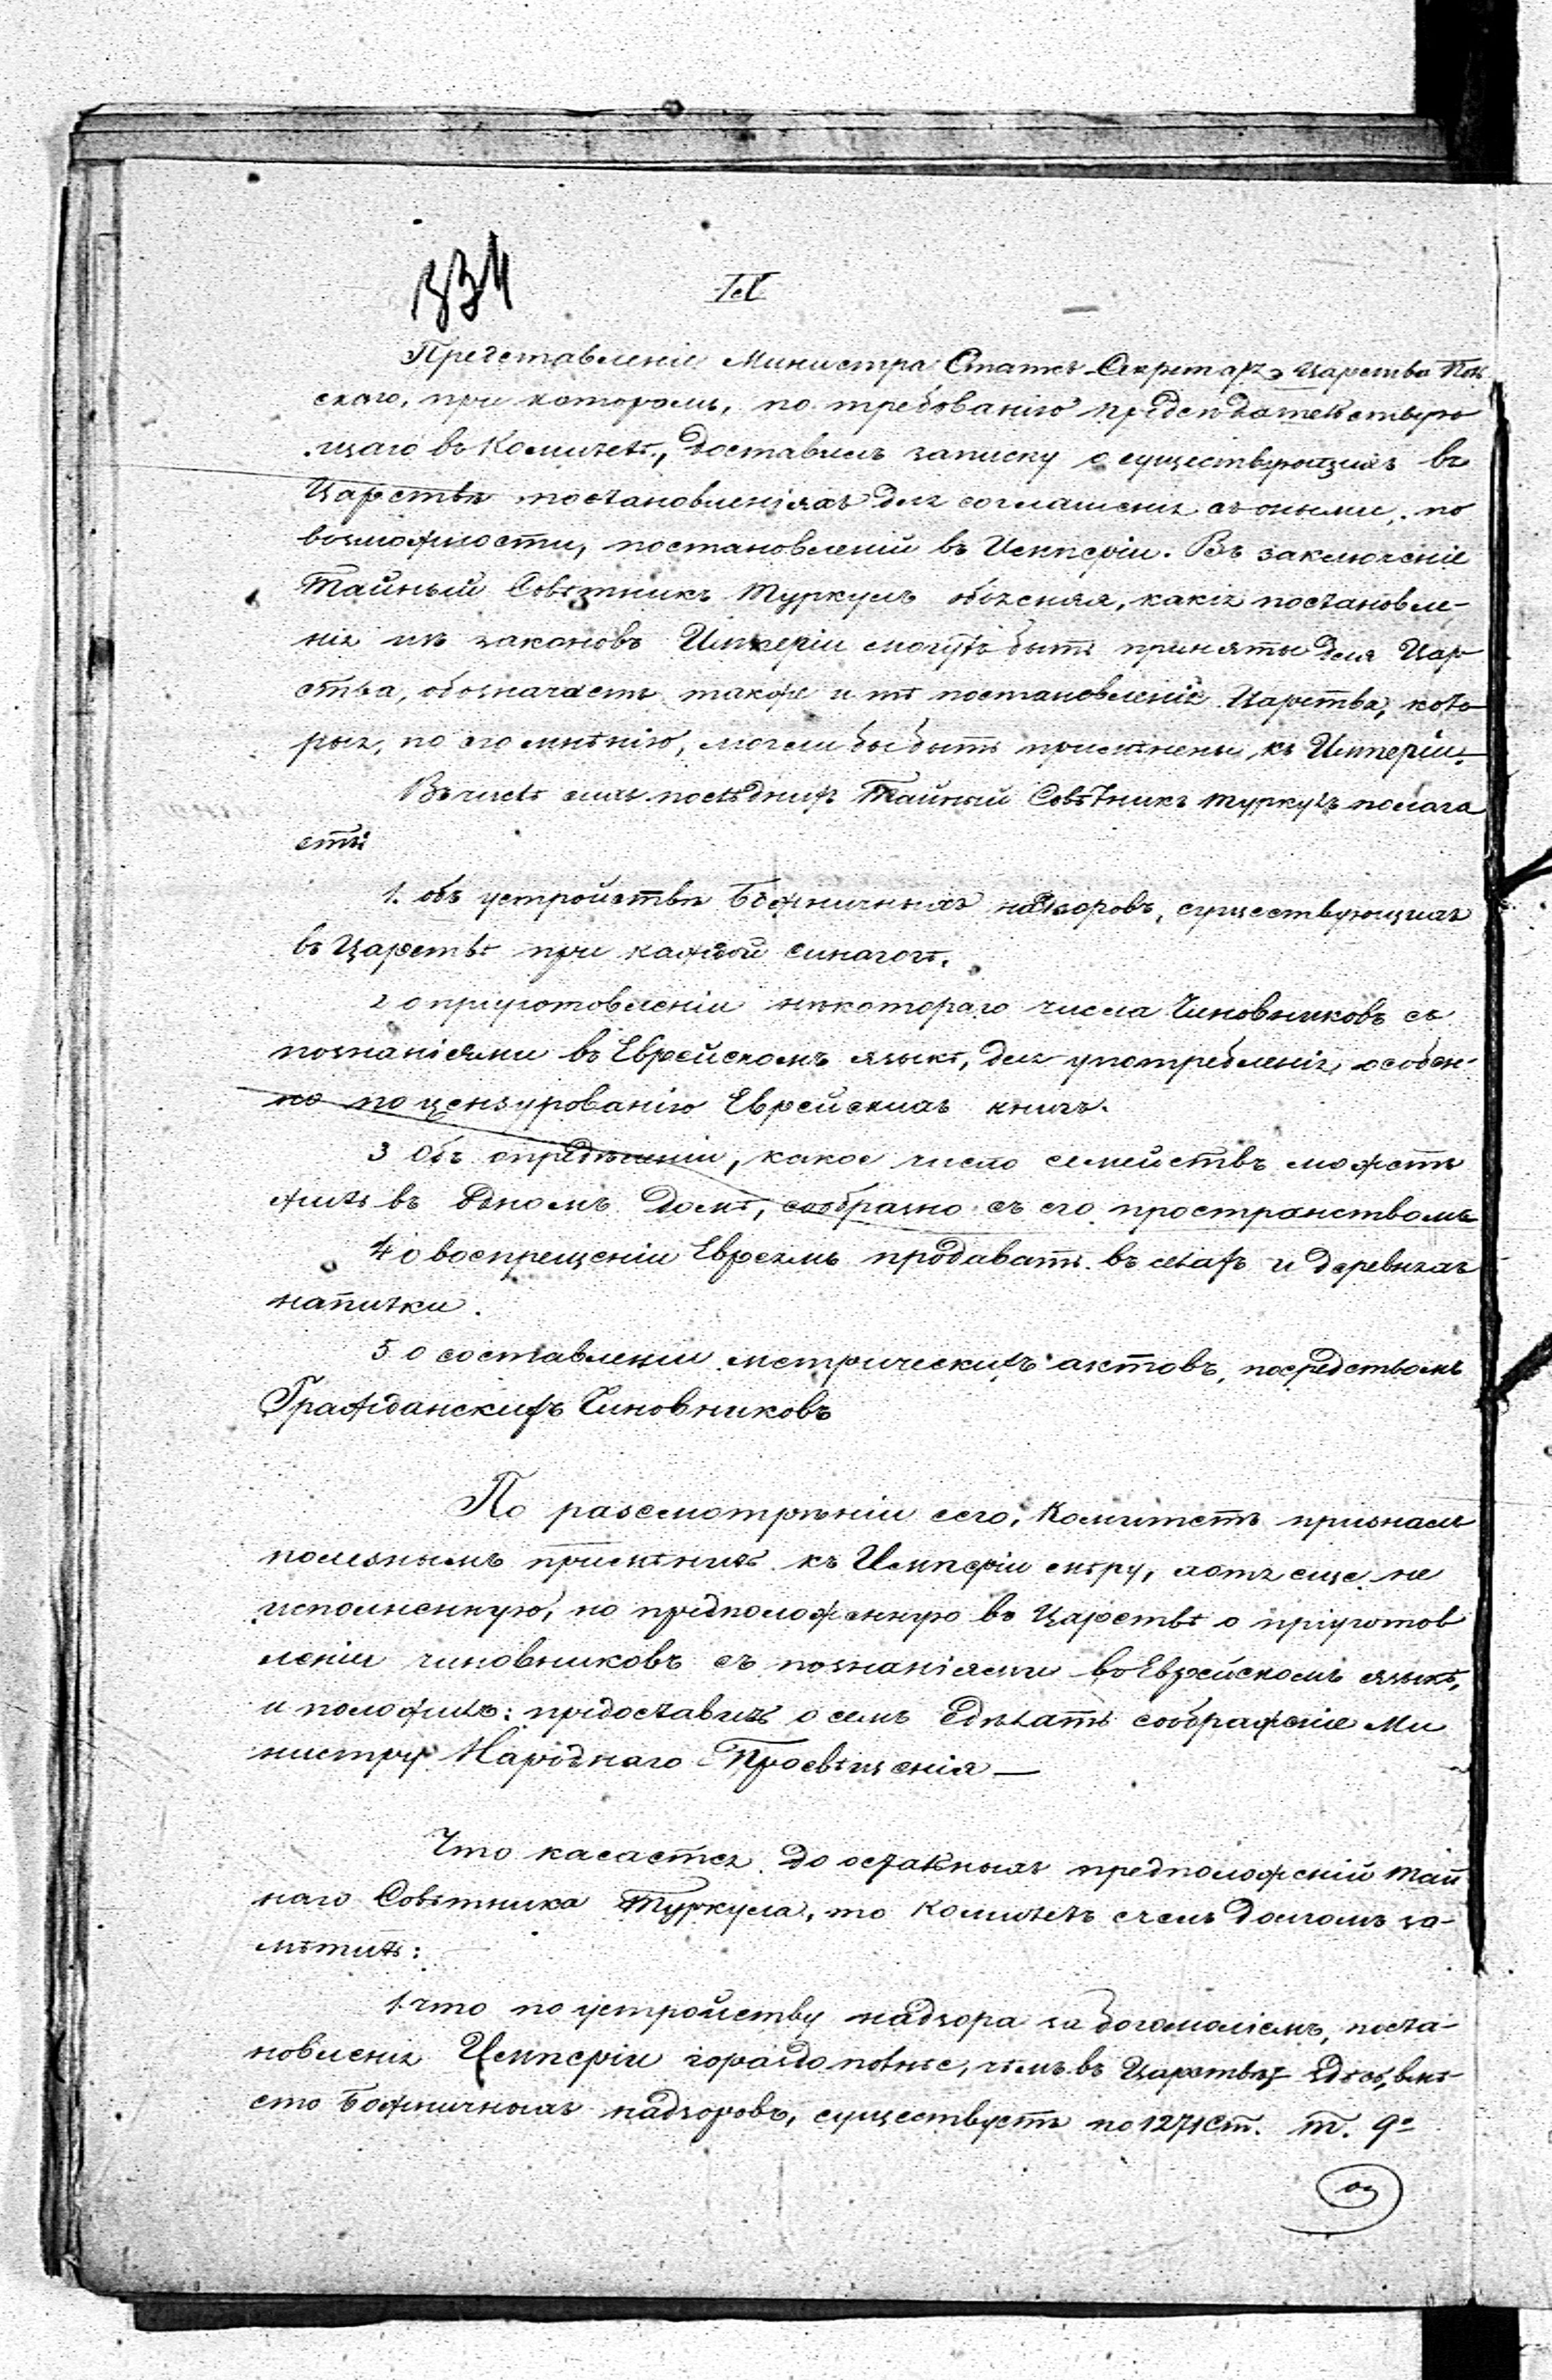 334
IV
Представленіе Министра Статсъ-Секретаря Царства Поль
скаго, при которомъ, по требованію председательствую
щаго въ Комитетѣ, доставилъ записку о существующихъ въ
Царствѣ постановленіяхъ для соглашенія съ оными, по
возможности, постановленій въ Имперіи. Въ заключеніе
Тайный Совѣтникъ Туркулъ объясняя, какія постановле-
нія изъ законовъ Имперіи могутъ быть приняты для Цар
ства, обозначаетъ также и тѣ постановленія Царства, кото
рыя, по его мнѣнію, могли бы быть примѣнены къ Имперіи.
Въ числѣ сихъ послѣднихъ Тайный Совѣтникъ Туркулъ полага
етъ:
1. объ устройствѣ Божничныхъ надзоровъ, существующихъ
въ Царствѣ при каждой синагогѣ.
2 о пріуготовленіи нѣкотораго числа Чиновниковъ съ
познаніями въ Еврейскомъ языкѣ, для употребленія, особен-
но по цензурованію Еврейскихъ книгъ.
3 Объ опредѣленіи, какое число семействъ можетъ
жить въ одномъ домѣ, сообразно съ его пространствомъ
4 о воспрещеніи Евреямъ продавать въ селахъ и деревняхъ
напитки.
5 о составленіи метрическихъ актовъ, посредствомъ
Гражданскихъ Чиновниковъ
По разсмотрѣніи сего, Комитетъ призналъ
полезнымъ примѣнить къ Имперіи мѣру, хотя еще не
исполненную, но предположенную въ Царствѣ о пріуготов
леніи чиновниковъ съ познаніями въ Еврейскомъ языкѣ,
и положилъ: предоставить о семъ сдѣлать соображеніе Ми
нистру Народнаго Просвѣщенія —
Что касается до остальныхъ предположеній Тай
наго Совѣтника Туркула, то Комитетъ счелъ долгомъ за-
мѣтить:
1. что по устройству надзора за богомоліемъ, поста-
новленія Имперіи гораздо полнѣе, чѣмъ въ Царствѣ. Здѣсь, вмѣ-
сто Божничныхъ надзоровъ, существуетъ по 1271 ст. Т. 9º